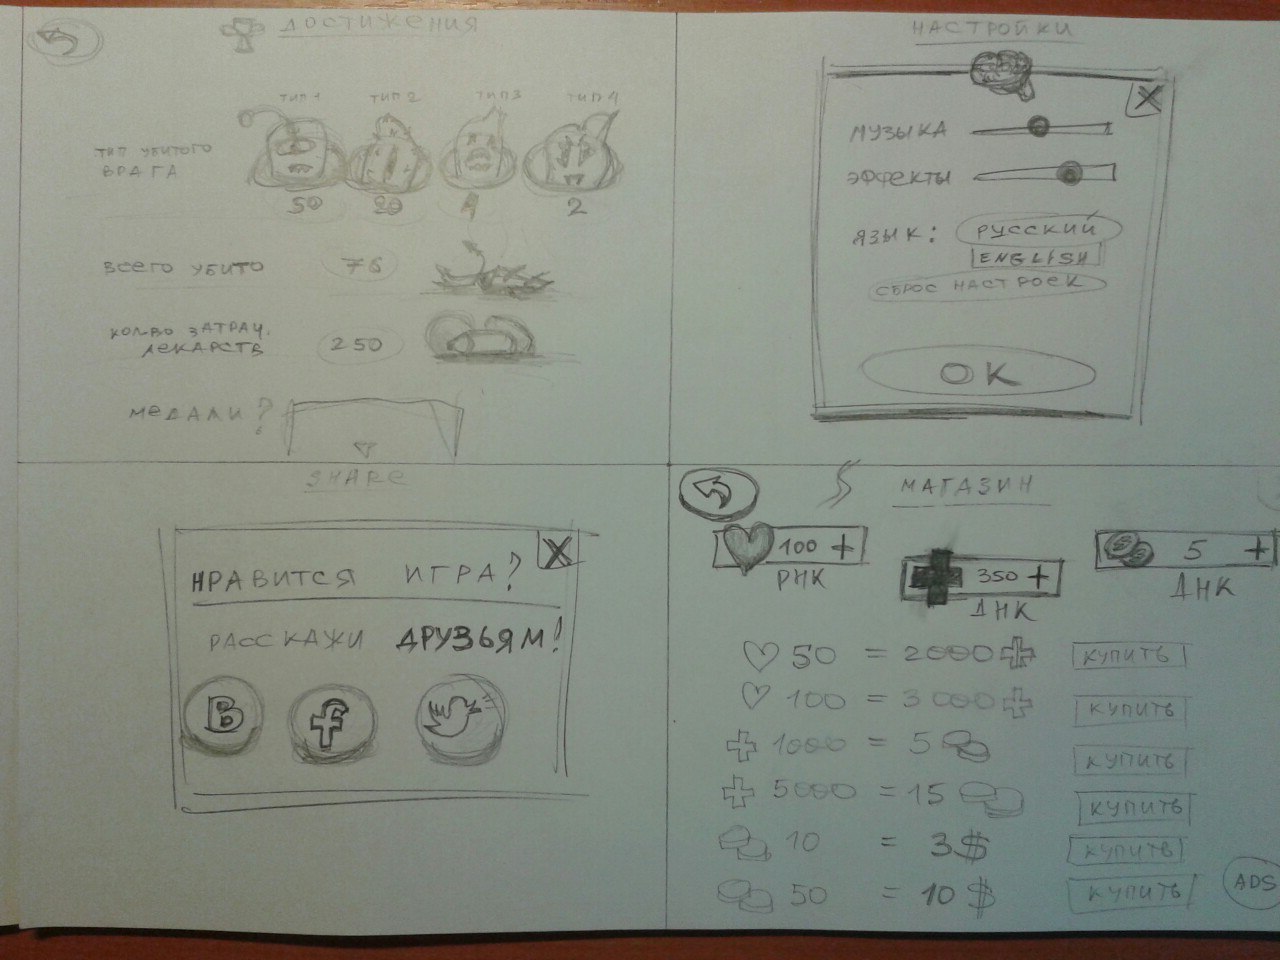 ДОСТИЖЕНИЯ
ТИП 1 ТИП 2 ТИП 3 ТИП 4
ТИП УБИТОГО
ВРАГА
50 20 4 2
ВСЕГО УБИТО 76
КОЛ-ВО ЗАТРАЧ.
ЛЕКАРСТВ 250
МЕДАЛИ?
НАСТРОЙКИ
X
МУЗЫКА
ЭФФЕКТЫ
ЯЗЫК: РУССКИЙ
ENGLISH
СБРОС НАСТРОЕК
ОК
SHARE
X
НРАВИТСЯ ИГРА?
РАССКАЖИ ДРУЗЬЯМ!
В f
МАГАЗИН
100 + 350 + 5 +
РНК ДНК ДНК
50 = 2000 КУПИТЬ
100 = 3000 КУПИТЬ
1000 = 5 КУПИТЬ
5000 = 15 КУПИТЬ
10 = 3$ КУПИТЬ
50 = 10$ КУПИТЬ
ADS